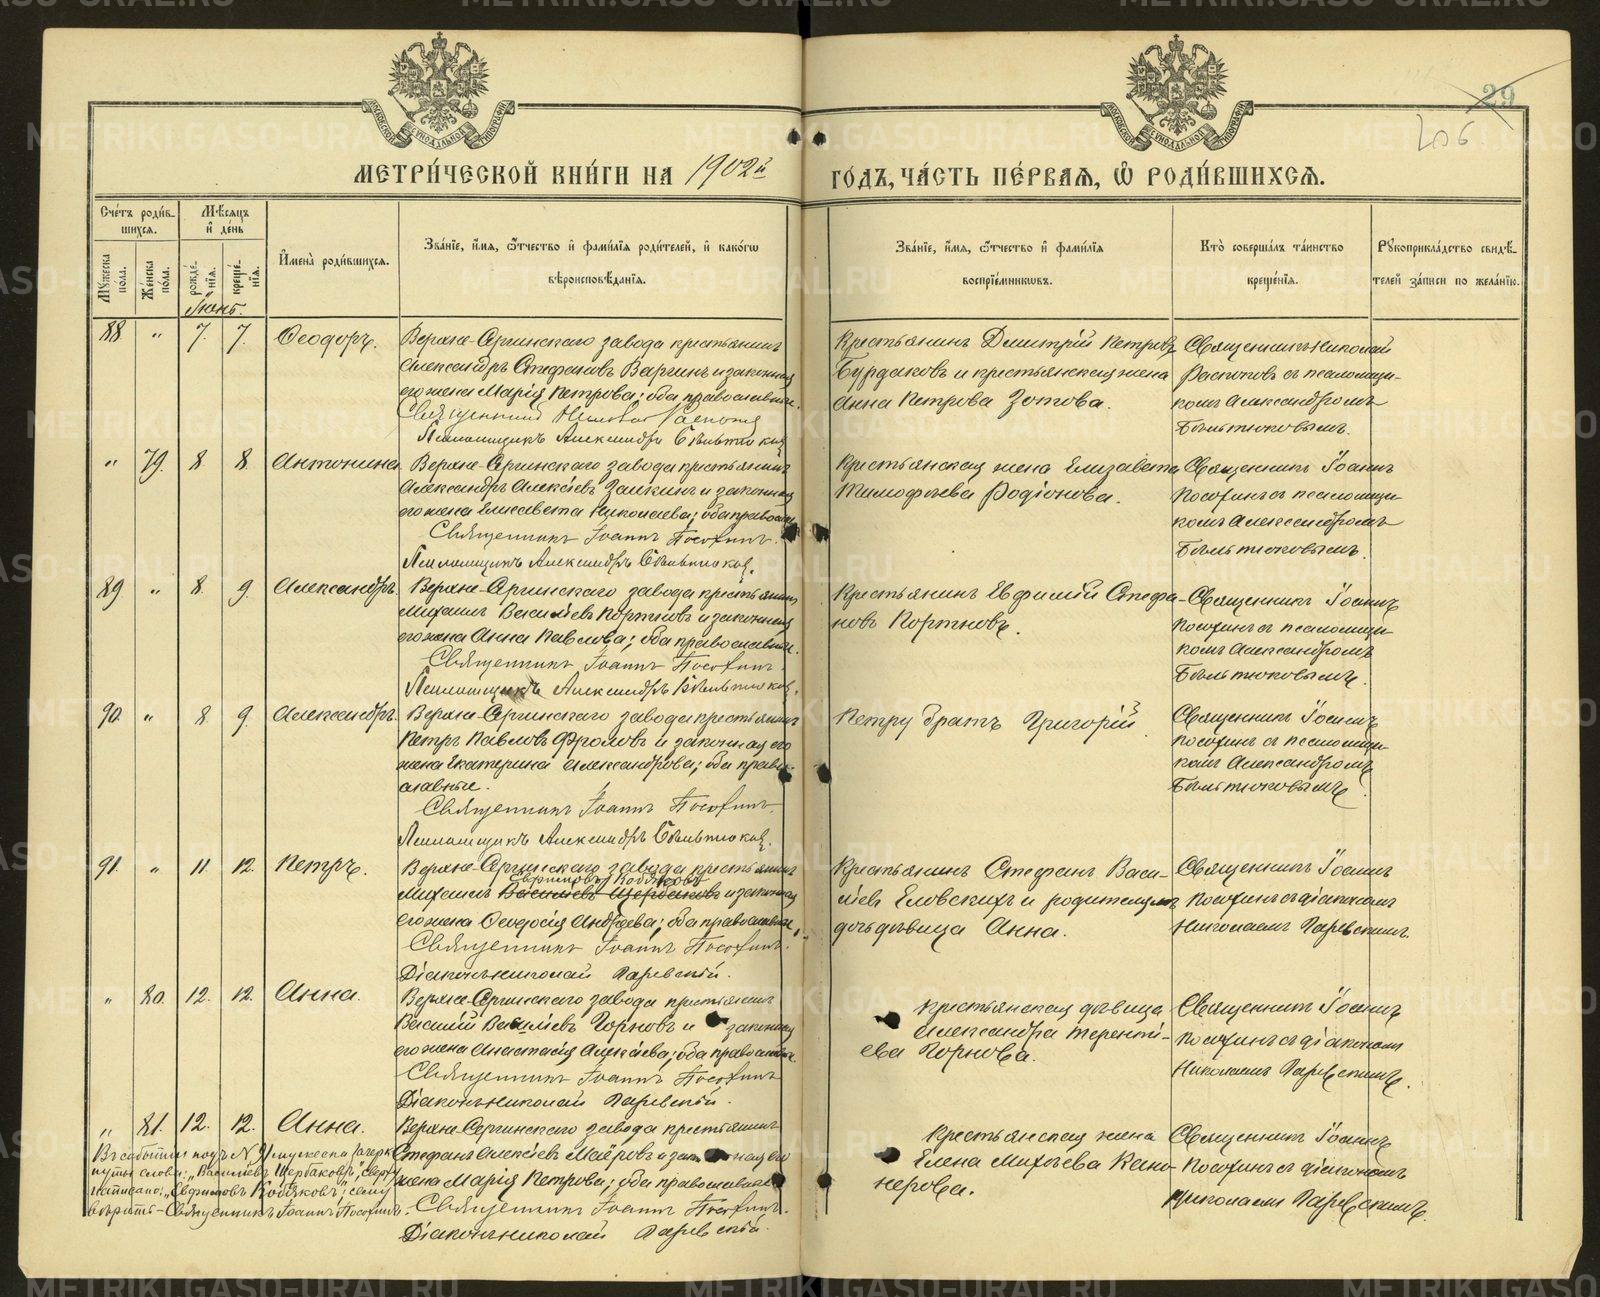 29
206
МЕТРИ́ЧЕСКОЙ КНИ́ГИ НА 1902й ГО́ДЪ, ЧА́СТЬ ПЕ́РВАѦ, Ѡ҆ РОДИ́ВШИХСѦ.
Сче́тъ роди́в-
шихсѧ.
Мꙋ́жеска по́ла.
Же́нска по́ла.
Мѣ́сѧцъ и҆ де́нь
рожде́-
нїѧ.
креще́-
нїѧ.
И҆мена̀ роди́вшихсѧ.
Зва́нїе, и҆́мѧ, ѻ҆́тчество и҆ фами́лїѧ роди́телей, и҆ како́гѡ
вѣроисповѣ́данїѧ.
Зва́нїе, и҆́мѧ, ѻ҆́тчество и҆ фами́лїѧ
воспрїе́мникѡвъ.
Кто̀ соверша́лъ та́инство
креще́нїѧ.
Рꙋкоприкла́дство свидѣ́-
телей за́писи по жела́нїю.
Іюнь.
88 " 7. 7. Ѳеодоръ.
Верхне-Сергинскаго завода крестьянинъ
Александръ Стефановъ Варгинъ и законная
его жена Марія Петрова; оба православные.
Священникъ Николай
Псаломщикъ Александръ Бѣльтюковъ
Крестьянинъ Дмитрій Петровъ
Бурдаковъ и крестьянская жена
Анна Петрова Зотова.
Священникъ Николай
съ псаломщи-
комъ Александромъ
Бѣльтюковымъ.
" 79. 8 8. Антонина.
Верхне-Сергинскаго завода крестьянинъ
Александръ Алексѣевъ Заикинъ и законная
его жена Елисавета Николаева; оба правосл.
Священникъ Іоаннъ Посохинъ.
Псаломщикъ Александръ Бѣльтюковъ.
Крестьянская жена Елизавета
Тимофѣева Родіонова.
Священникъ Іоаннъ
Посохинъ съ псаломщи-
комъ Александромъ
Бѣльтюковымъ.
89 " 8. 9. Александръ.
Верхне-Сергинскаго завода крестьянинъ
Михаилъ Васильевъ Портновъ и законная
его жена Анна Павлова; оба православные.
Священникъ Іоаннъ Посохинъ.
Псаломщикъ Александръ Бѣльтюковъ.
Крестьянинъ Евфимій Стефа-
новъ Портновъ.
Священникъ Іоаннъ
Посохинъ съ псаломщи-
комъ Александромъ
Бѣльтюковымъ.
90. " 8. 9. Александръ.
Верхне-Сергинскаго завода крестьянинъ
Петръ Павловъ Фроловъ и законная его
жена Екатерина Александрова; оба право-
славные.
Священникъ Іоаннъ Посохинъ.
Псаломщикъ Александръ Бѣльтюковъ.
Петру братъ Григорій.
Священникъ Іоаннъ
Посохинъ съ псаломщи-
комъ Александромъ
Бѣльтюковымъ.
91. " 11. 12. Петръ.
Верхне-Сергинскаго завода крестьянинъ
Евфимовъ Кобяковъ
Михаилъ Васильевъ Щербаковъ и законная
его жена Ѳеодосія Андреева; оба православные.
Священникъ Іоаннъ Посохинъ.
Діаконъ Николай Паревскій.
Крестьянинъ Стефанъ Васи-
льевъ Еловскихъ и родителямъ
дочь дѣвица Анна.
Священникъ Іоаннъ
Посохинъ съ діакономъ
Николаемъ Паревскимъ.
" 80. 12. 12. Анна.
Верхне-Сергинскаго завода крестьянинъ
Василій Васильевъ Горновъ и законная
его жена Анастасія Алексѣева; оба православные
Священникъ Іоаннъ Посохинъ
Діаконъ Николай Паревскій.
Крестьянская дѣвица
Александра Терентi-
ева Горнова.
Священникъ Іоаннъ
Посохинъ съ діакономъ
Николаемъ Паревскимъ.
" 81. 12. 12. Анна.
Верхне-Сергинскаго завода крестьянинъ
Стефанъ Алексѣевъ Маёровъ и законная его
жена Марія Петрова; оба православные
Священникъ Іоаннъ Посохинъ.
Діаконъ Николай Паревскій.
Крестьянская жена
Елена Михѣева Кано-
нерова.
Священникъ Іоаннъ
Посохинъ съ діакономъ
Николаемъ Паревскимъ.
Въ событіи подъ № 91 мужеска зачерк-
нуты слова: "Васильевъ Щербаковъ", сверху
написано: "Евфимовъ Кобяковъ"; сему
вѣрить - Священникъ Іоаннъ Посохинъ.
METRIKI.GASO-URAL.RU